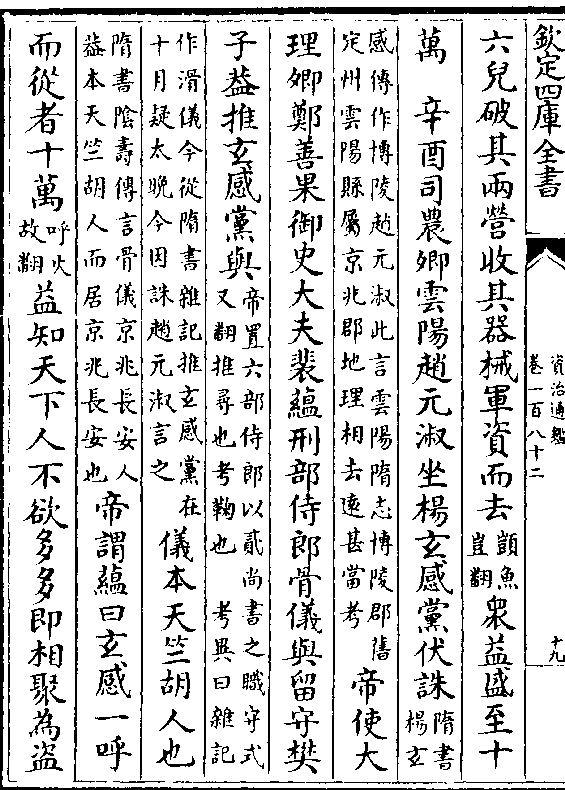 欽定四庫全書
資治通鑑
卷一百八十二
十九
六兒破其兩營收其器械軍資而去顗魚豈翻衆益盛至十
萬 辛酉司農卿雲陽趙元淑坐楊玄感黨伏誅隋書楊玄
感傳作博陵趙元淑此言雲陽隋志博陵郡舊定州雲陽縣屬京兆郡地理相去遠甚當考帝使大
理卿鄭善果御史大夫裴蘊刑部侍郎骨儀與留守樊
子葢推玄感黨與帝置六部侍郎以貳尚書之職守式又翻推尋也考鞠也 考異曰雜記
作滑儀今從隋書雜記推玄感黨在十月疑太晚今因誅趙元淑言之儀本天竺胡人也
隋書陰壽傳言骨儀京兆長安人葢本天竺胡人而居京兆長安也帝謂蘊曰玄感一呼
而從者十萬呼火故翻益知天下人不欲多多即相聚為盜